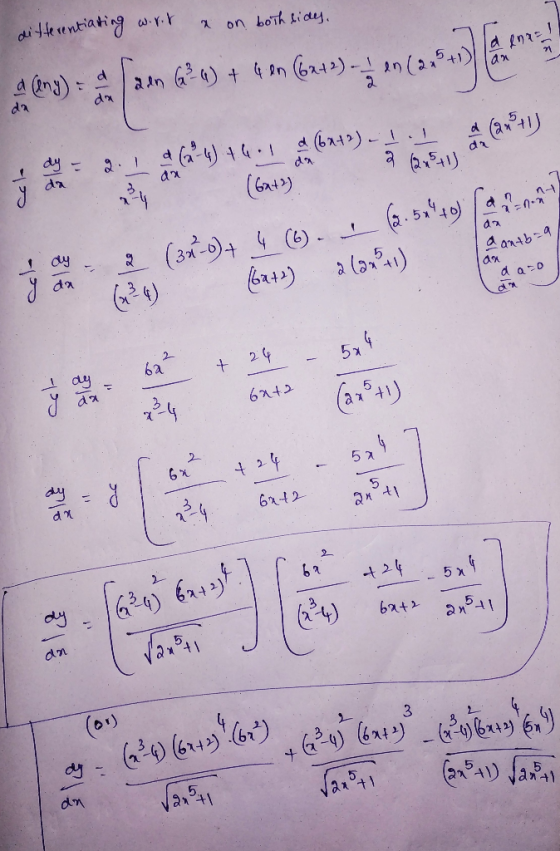 differentiating w.r.t x on both sides.
d/dx (ln y) = d/dx [2 ln (x³-4) + 4 ln (6x+2) - 1/2 ln (2x⁵+1)] [d/dx ln x = 1/x]
1/y dy/dx = 2·1/(x³-4) d/dx (x³-4) + 4·1/(6x+2) d/dx (6x+2) - 1/2 · 1/(2x⁵+1) d/dx (2x⁵+1)
1/y dy/dx = 2/(x³-4) (3x²-0) + 4/(6x+2) (6) - 1/2(2x⁵+1) (2·5x⁴+0) [d/dx xⁿ = n·xⁿ⁻¹
d/dx ax+b = a
d/dx a = 0
1/y dy/dx = 6x²/x³-4 + 24/6x+2 - 5x⁴/(2x⁵+1)
dy/dx = y [6x²/x³-4 + 24/6x+2 - 5x⁴/2x⁵+1]
dy/dx = [(x³-4)² (6x+2)⁴/√2x⁵+1] [6x²/(x³-4) + 24/6x+2 - 5x⁴/2x⁵+1]
(or)
dy/dx = (x³-4) (6x+2)⁴·(6x²)/√2x⁵+1 + (x³-4)² (6x+2)³/√2x⁵+1 - (x³-4)² (6x+2)⁴ (5x⁴)/(2x⁵+1) √2x⁵+1